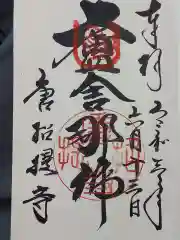 奉拝
令和三年
月十三日
盧舎那佛
唐招提寺